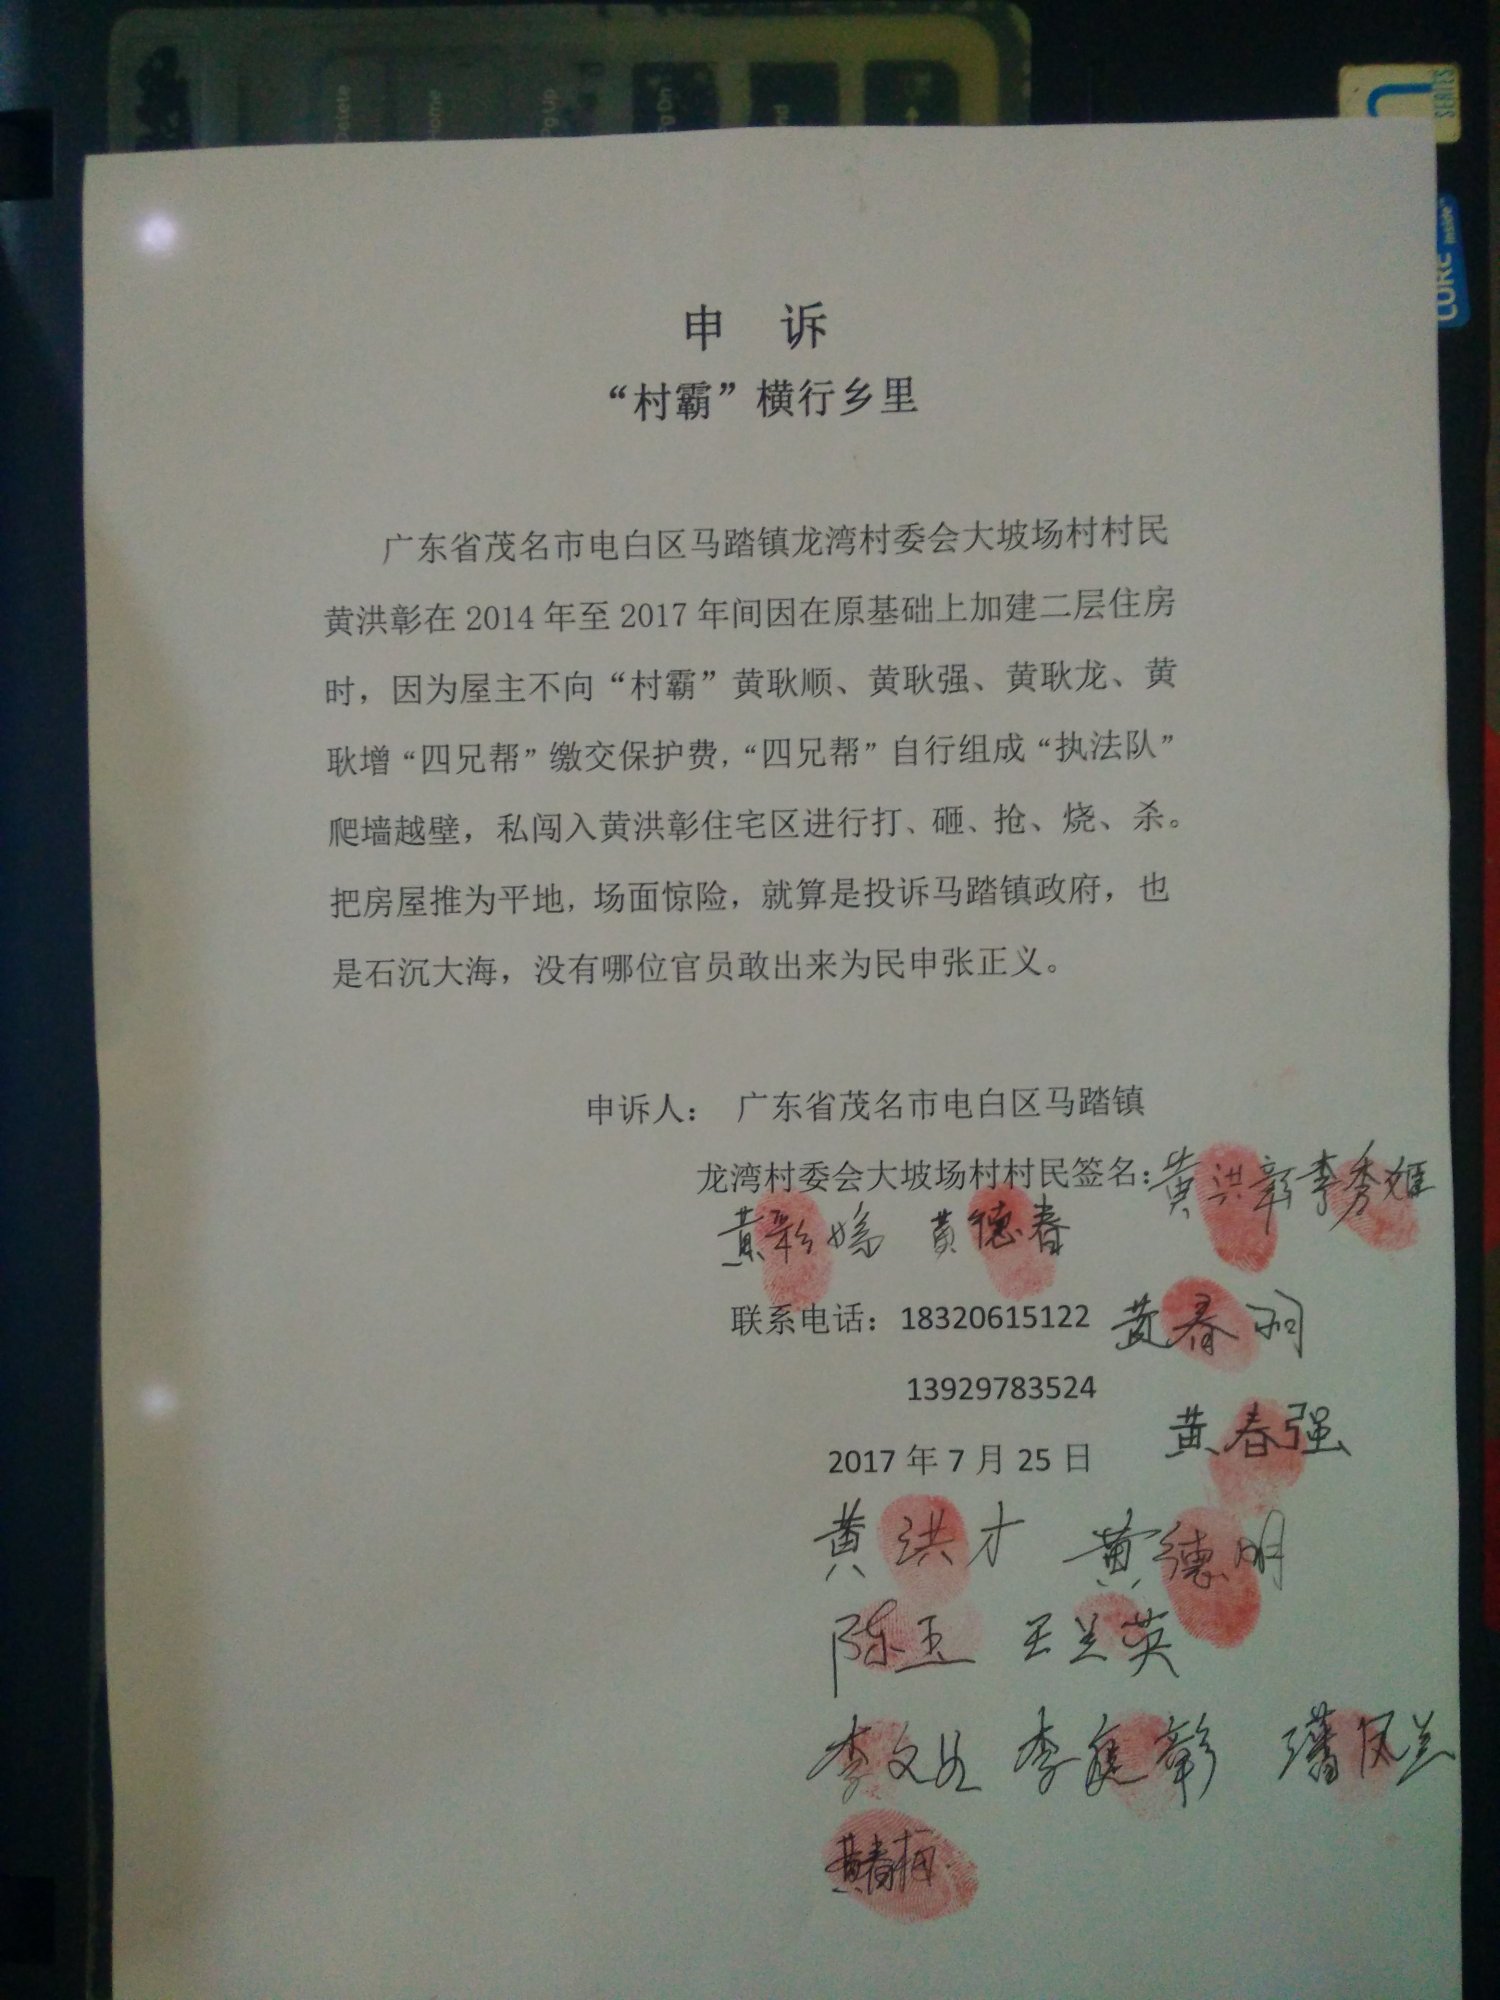 Delete
Pg Up
Pg Dn
SERIES
CORE inside™
申 诉
“村霸”横行乡里
广东省茂名市电白区马踏镇龙湾村委会大坡场村村民
黄洪彰在 2014 年至 2017 年间因在原基础上加建二层住房
时，因为屋主不向“村霸”黄耿顺、黄耿强、黄耿龙、黄
耿增“四兄帮”缴交保护费，“四兄帮”自行组成“执法队”
爬墙越壁，私闯入黄洪彰住宅区进行打、砸、抢、烧、杀。
把房屋推为平地，场面惊险，就算是投诉马踏镇政府，也
是石沉大海，没有哪位官员敢出来为民申张正义。
申诉人： 广东省茂名市电白区马踏镇
龙湾村委会大坡场村村民签名：黄洪彰 李秀
黄彩嫦 黄德春
联系电话：18320615122 黄春
13929783524
黄春强
2017 年 7 月 25 日
黄洪才 黄德明
陈玉 王兰英
李文 李 彰 潘凤兰
黄春梅